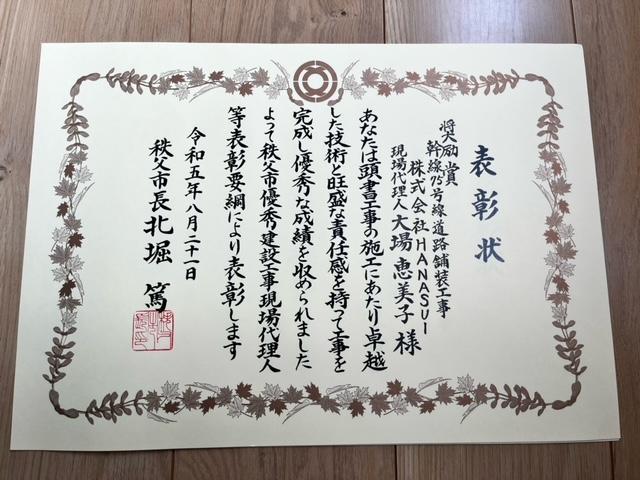 表彰状
奨励賞
幹線75号線道路舗装工事
株式会社HANASUI
現場代理人 大場恵美子様
あなたは頭書工事の施工にあたり卓越
した技術と旺盛な責任感を持って工事を
完成し優秀な成績を収められました
よって秩父市優秀建設工事現場代理人
等表彰要綱により表彰します
令和五年八月二十一日
秩父市長 北堀 篤